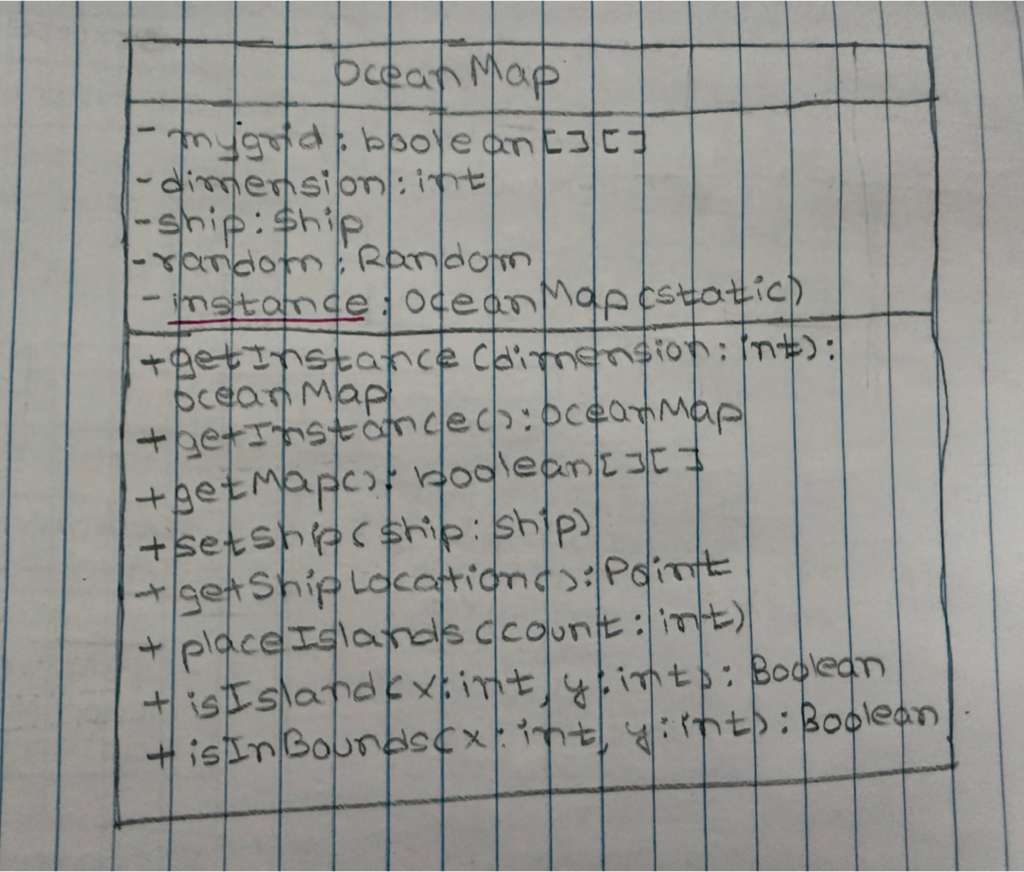 OceanMap
- mygrid : boolean[][]
- dimension : int
- ship : Ship
- random : Random
- instance : OceanMap (static)
+ getInstance (dimension : int) :
OceanMap
+ getInstance() : OceanMap
+ getMap() : boolean[][]
+ setShip (ship : Ship)
+ getShipLocation() : Point
+ placeIslands (count : int)
+ isIsland (x : int, y : int) : Boolean
+ isInBounds (x : int, y : int) : Boolean